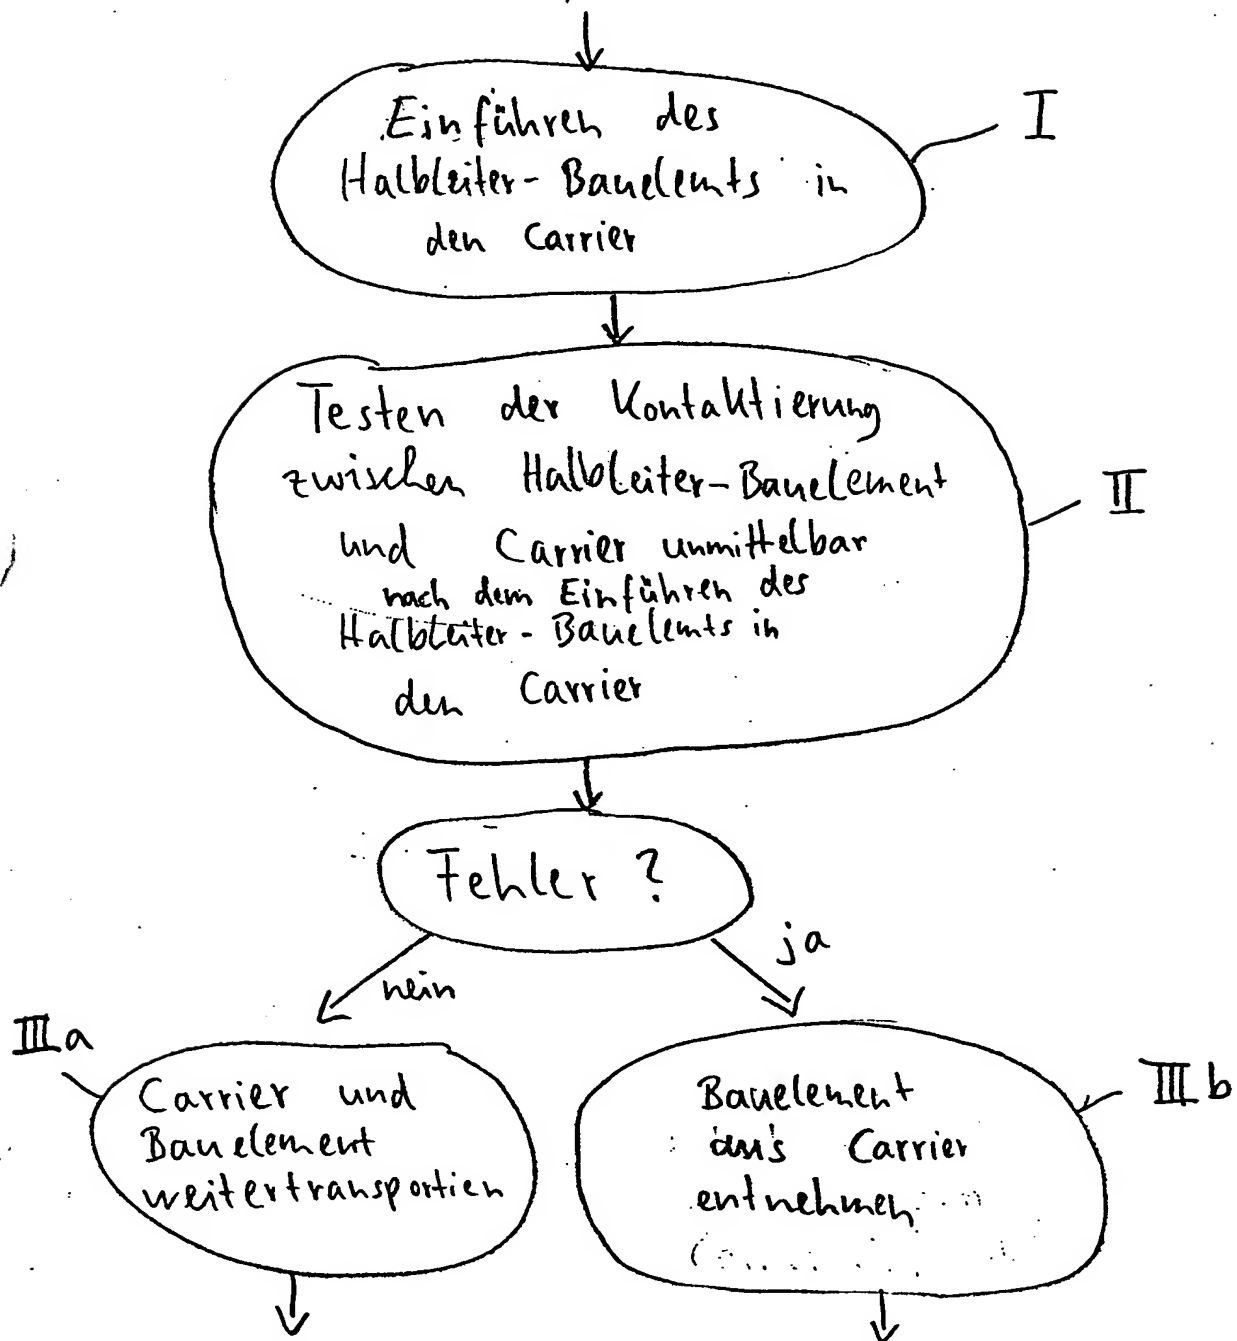 Einführen des
I
Halbleiter-Bauelemts in
den Carrier
Testen der Kontaktierung
zwischen Halbleiter-Bauelement
II
und Carrier unmittelbar
nach dem Einführen des
Halbleiter-Bauelemts in
den Carrier
Fehler ?
nein
ja
IIIa
Carrier und
Bauelement
weitertransportien
IIIb
Bauelement
aus Carrier
entnehmen